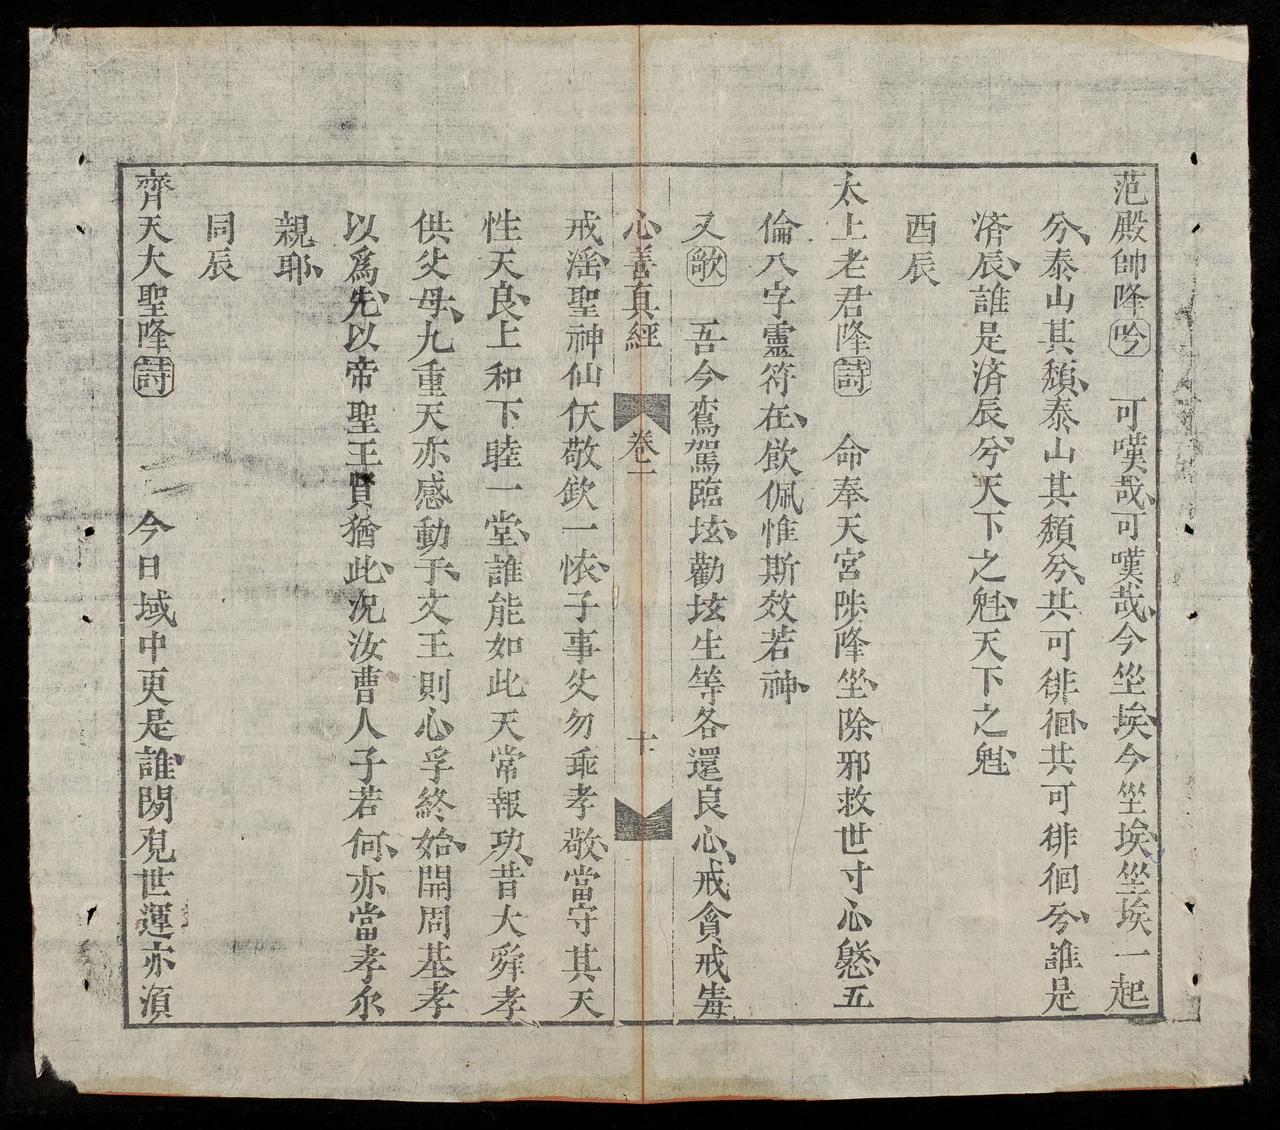 范殿帥降吟　可嘆哉可嘆哉今𡊄埃今𡊄埃𡊄埃一起
兮泰山其頹泰山其頹兮共可徘徊共可徘徊兮誰是
済辰誰是済辰兮天下之魁天下之魁
酉辰
太上老君降詩　命奉天宮陟降𡊄除邪救世寸心懸五
倫八字靈符在飲佩惟斯效若神
又歌　吾今鸞駕臨坛勸坛生等各還良心戒貪戒毒
心善真經　卷一　十
戒滛聖神仙仸敬欽一㤈子事父勿乖孝敬當守其天
性天良上和下睦一堂誰能如此天常報功昔大舜孝
供父母九重天亦感動于文王則心孚終始開周基孝
以爲先以帝聖王賢猶此况汝曹人子若何亦當孝尔
親耶
同辰
齊天大聖降詩　今日域中更是誰閱覌世運亦湏